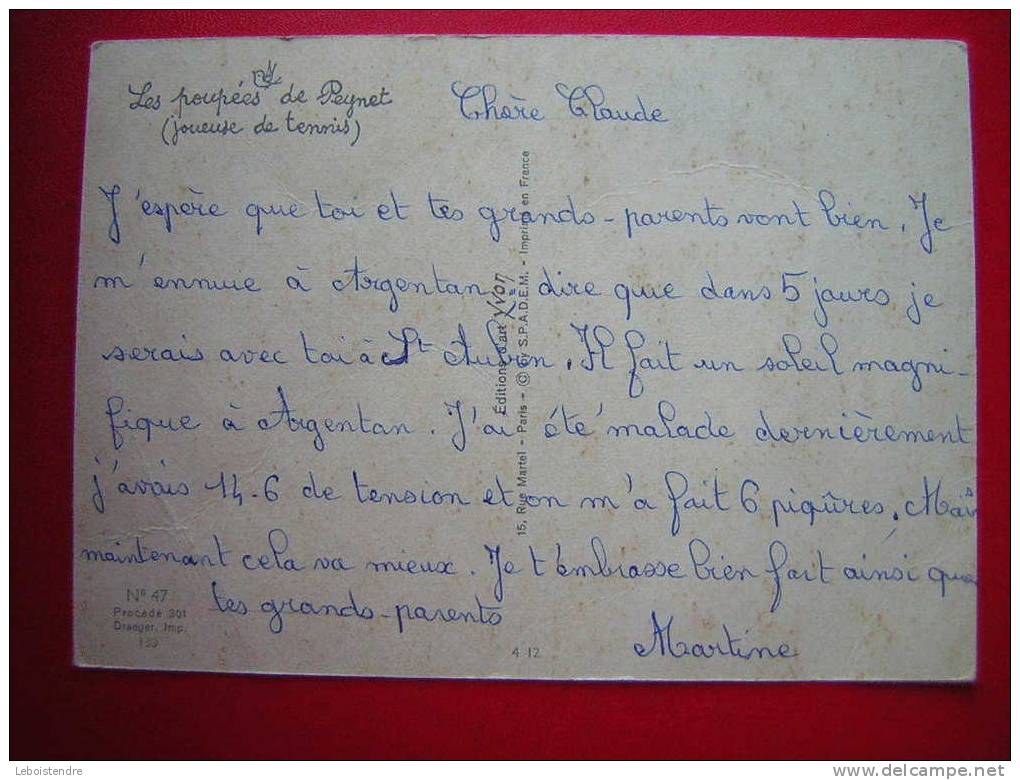 Les poupées de Peynet
(joueuse de tennis)
Chère Claude
J'espère que toi et tes grands-parents vont bien. Je
m'ennuie à Argentan, dire que dans 5 jours je
serais avec toi à St Aubin. Il fait un soleil magni-
fique à Argentan. J'ai été malade dernièrement
j'avais 14-6 de tension et on m'a fait 6 piqûres. Mais
maintenant cela va mieux. Je t'embrasse bien fort ainsi que
tes grands-parents
Martine
Éditions d'art YVON
15, Rue Martel - Paris - © by S.P.A.D.E.M. - Imprimé en France
Nº 47
Procédé 301
Draeger, Imp.
4 12
Leboistendre
www.delcampe.net